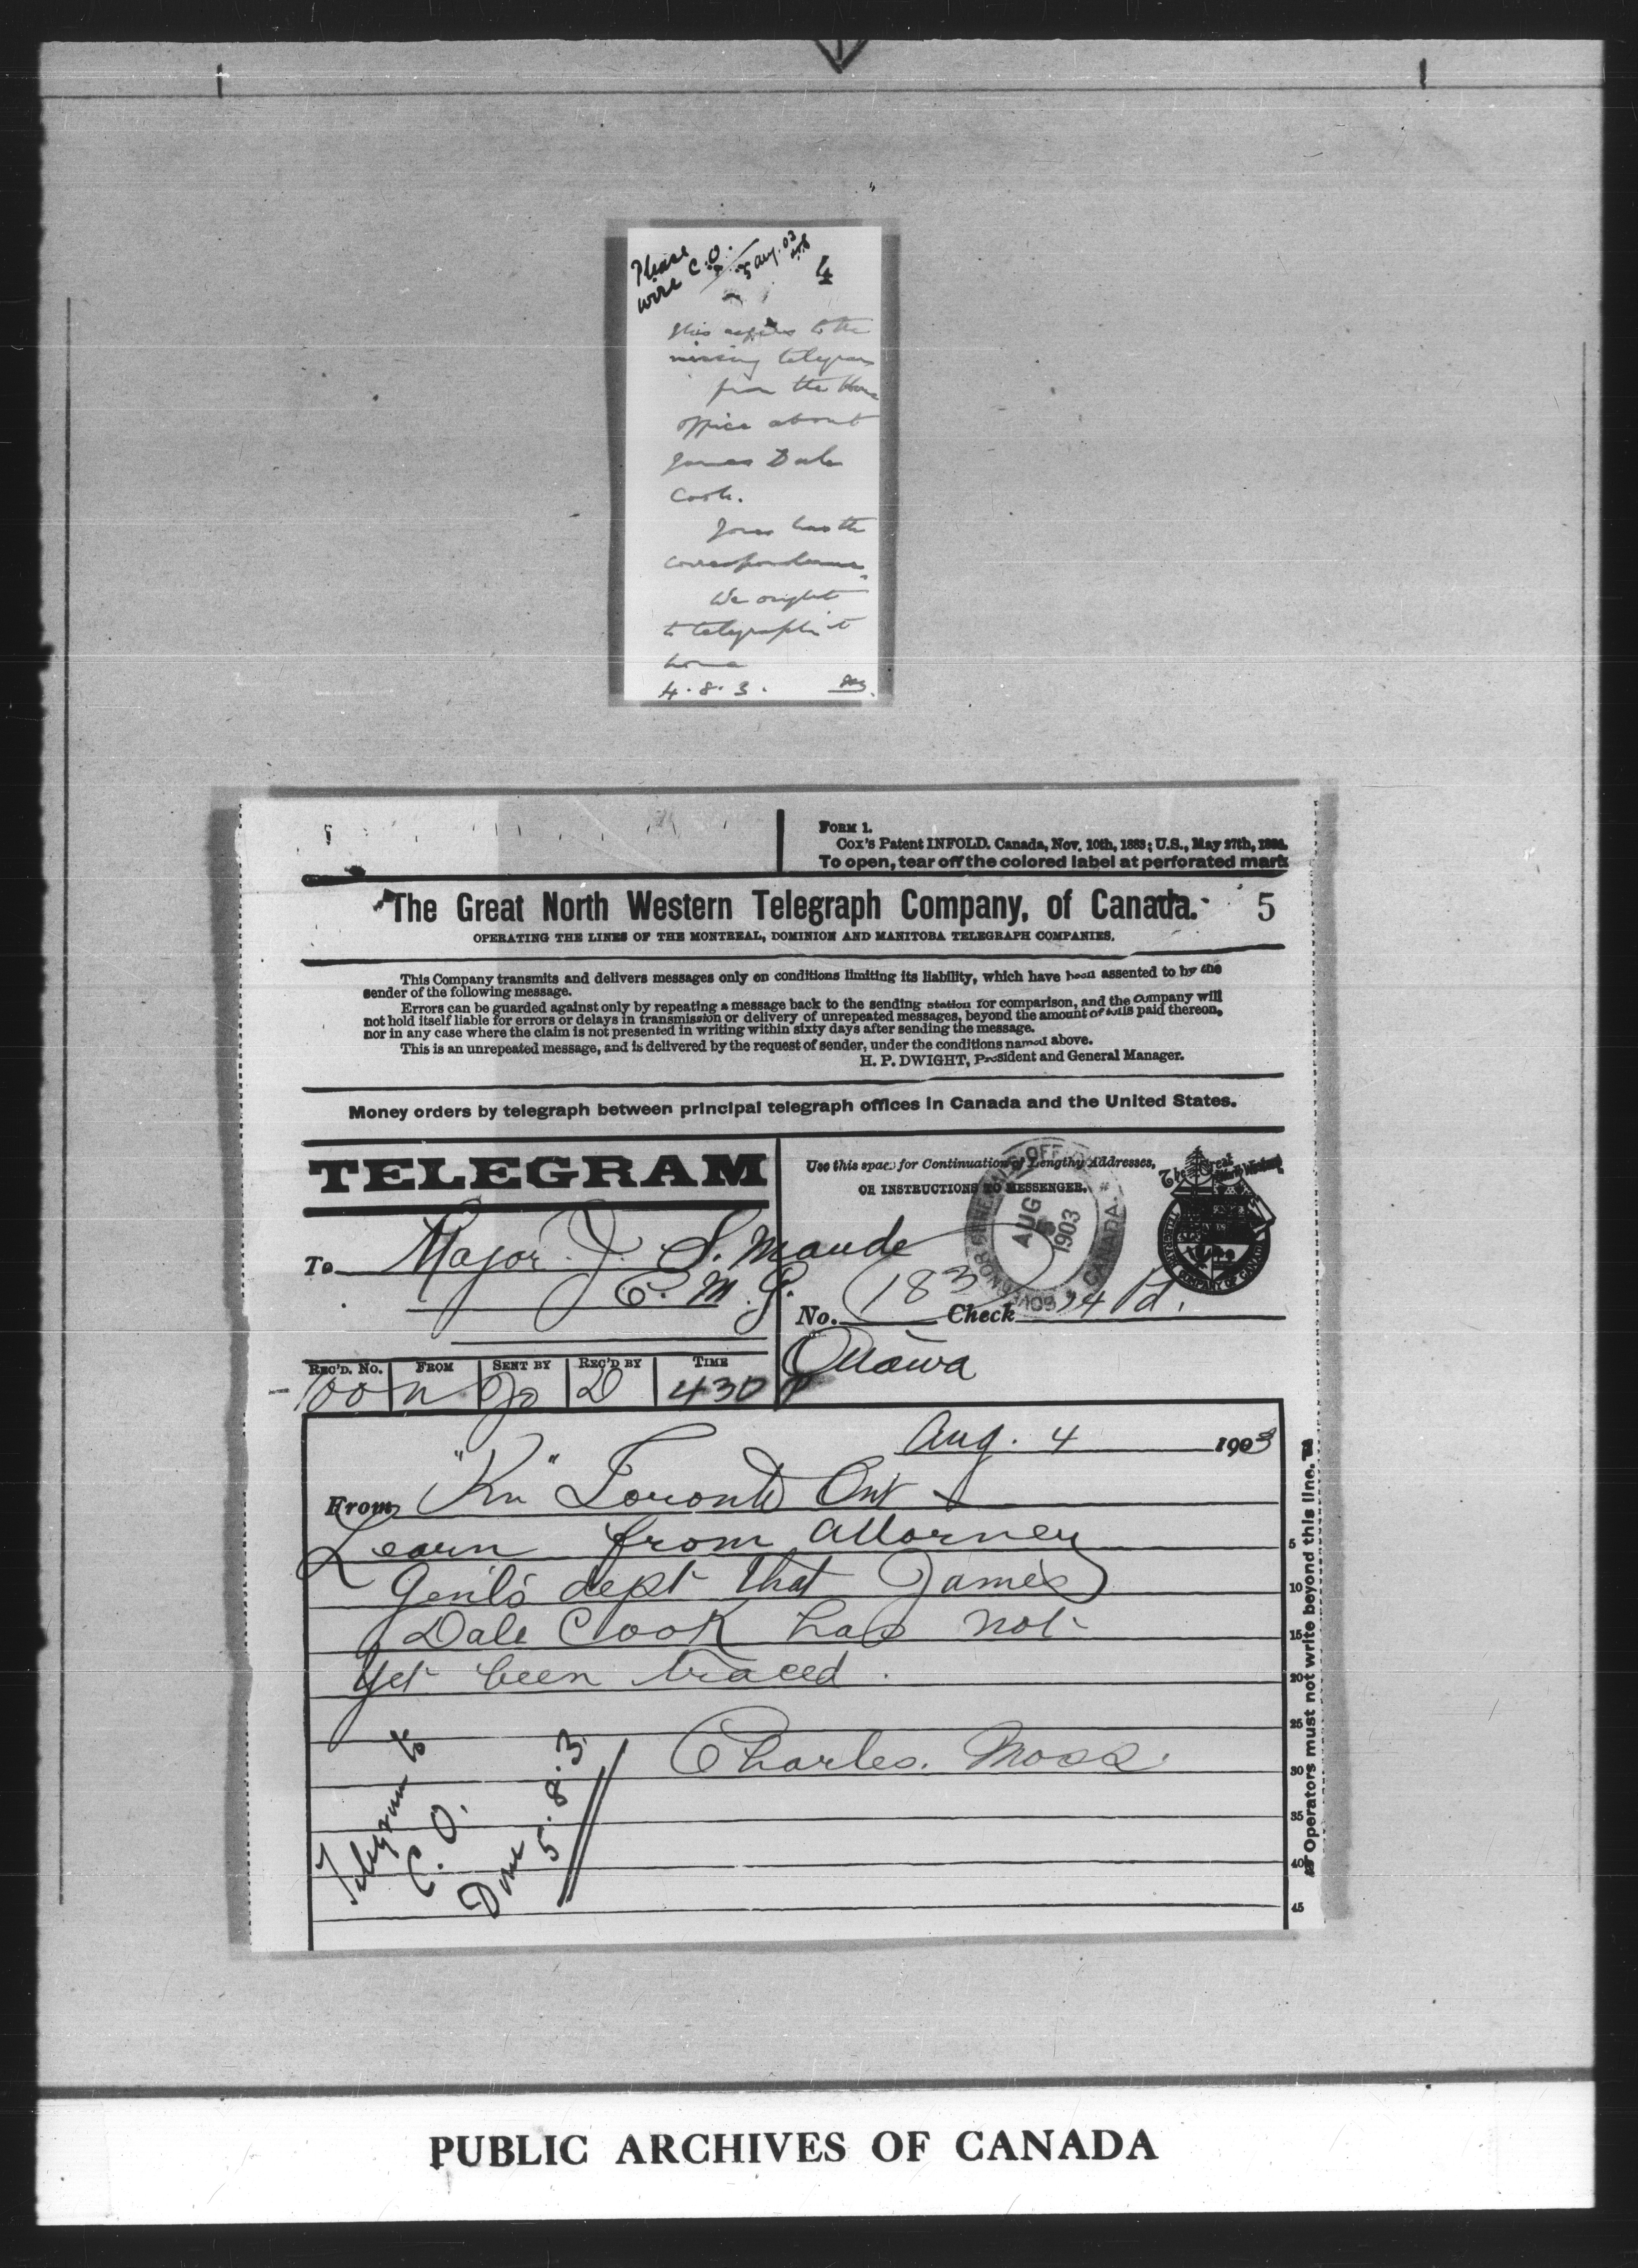 Please
wire C.O.
5 Aug. 03
4
This refers to the
missing telegram
from the Home
office about
James Dale
Cook.
Jones has the
correspondence.
We ought
to telegraph it
home
4.8.3.
FORM 1.
Cox's Patent INFOLD. Canada, Nov. 10th, 1883; U.S., May 27th,
To open, tear off the colored label at perforated mark
The Great North Western Telegraph Company, of Canada. 5
OPERATING THE LINES OF THE MONTREAL, DOMINION AND MANITOBA TELEGRAPH COMPANIES.
This Company transmits and delivers messages only on conditions limiting its liability, which have been assented to by the
sender of the following message.
Errors can be guarded against only by repeating a message back to the sending station for comparison, and the company will
not hold itself liable for errors or delays in transmission or delivery of unrepeated messages, beyond the amount of tolls paid thereon,
nor in any case where the claim is not presented in writing within sixty days after sending the message.
This is an unrepeated message, and is delivered by the request of sender, under the conditions named above.
H. P. DWIGHT, President and General Manager.
Money orders by telegraph between principal telegraph offices in Canada and the United States.
TELEGRAM
Use this space for Continuation of Lengthy Addresses,
OR INSTRUCTIONS TO MESSENGER.
GOVERNOR GENERAL'S OFFICE CANADA
AUG 5 1903
The Great North Western
TELEGRAPH COMPANY OF CANADA
To Major J. S. Maude
C. M. G.
No. 183 Check 14 Pd.
Ottawa
REC'D. NO. FROM SENT BY REC'D BY TIME
100 n Jo D 430 P
Aug. 4 1903
From "Kn" Toronto Ont
Learn from Attorney
Genl's dept that James
Dale Cook has not
yet been traced.
Charles. Moss.
Telegram to
C. O.
Done 5.8.3
5
10
15
20
25
30
35
40
45
Operators must not write beyond this line.
PUBLIC ARCHIVES OF CANADA